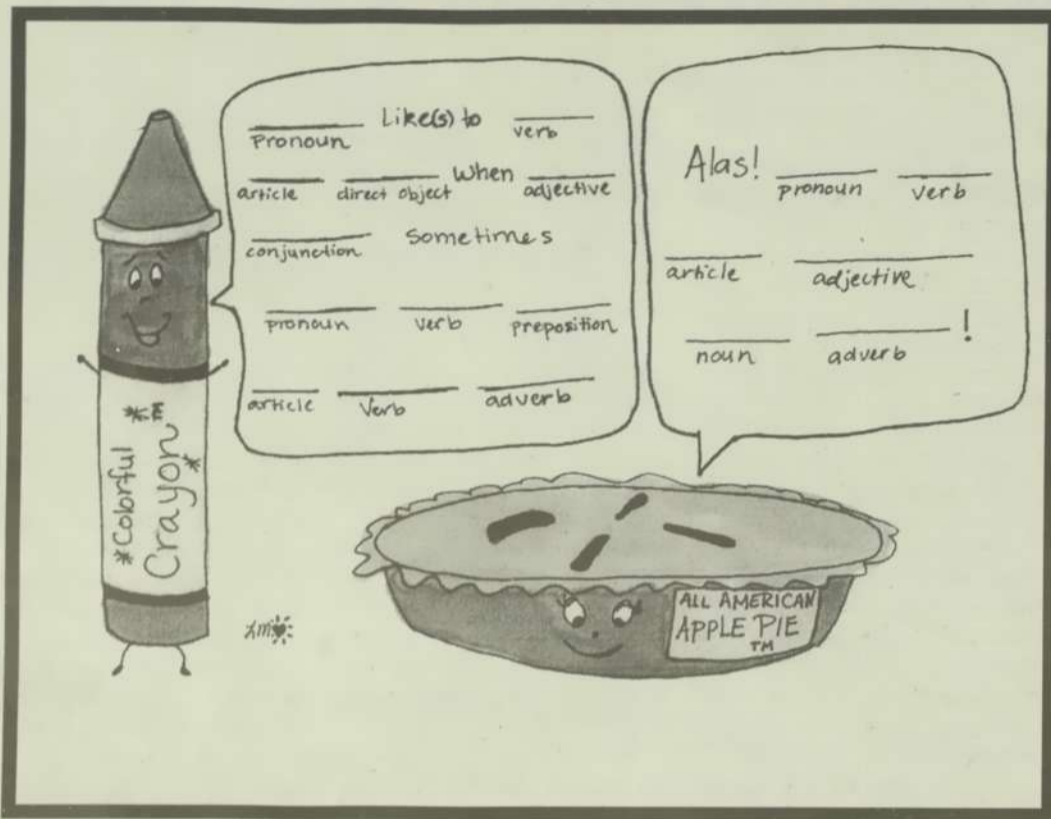 Like(s) to
pronoun verb
when
article direct object adjective
sometimes
conjunction
pronoun verb preposition
article Verb adverb
Alas!
pronoun verb
article adjective
!
noun adverb
*Colorful
Crayon*
TM
ALL AMERICAN
APPLE PIE
TM